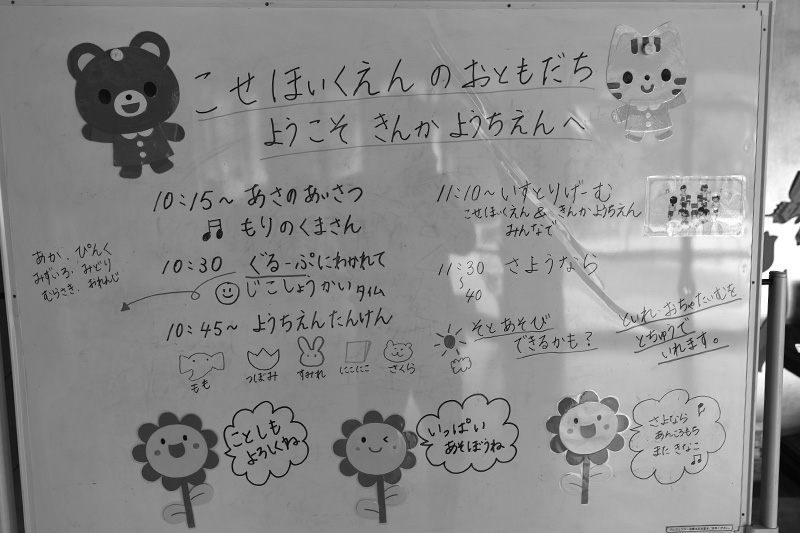 こせほいくえん のおともだち
ようこそ きんか ようちえんへ
10:15～ あさのあいさつ
♫ もりのくまさん
10:30 ぐるーぷにわかれて
じこしょうかいタイム
あか、ぴんく
みずいろ、みどり
むらさき、おれんじ
10:45～ ようちえんたんけん
もも つぼみ すみれ にこにこ さくら
11:10～ いすとりげーむ
こせほいくえん & きんかようちえん
みんなで
11:30 さようなら
～
40
そとあそび
できるかも？
といれ・おちゃたいむを
とちゅうで
いれます。
ことしも
よろしくね
いっぱい
あそぼうね
さよなら ♪
あんころもち
また きなこ
♫